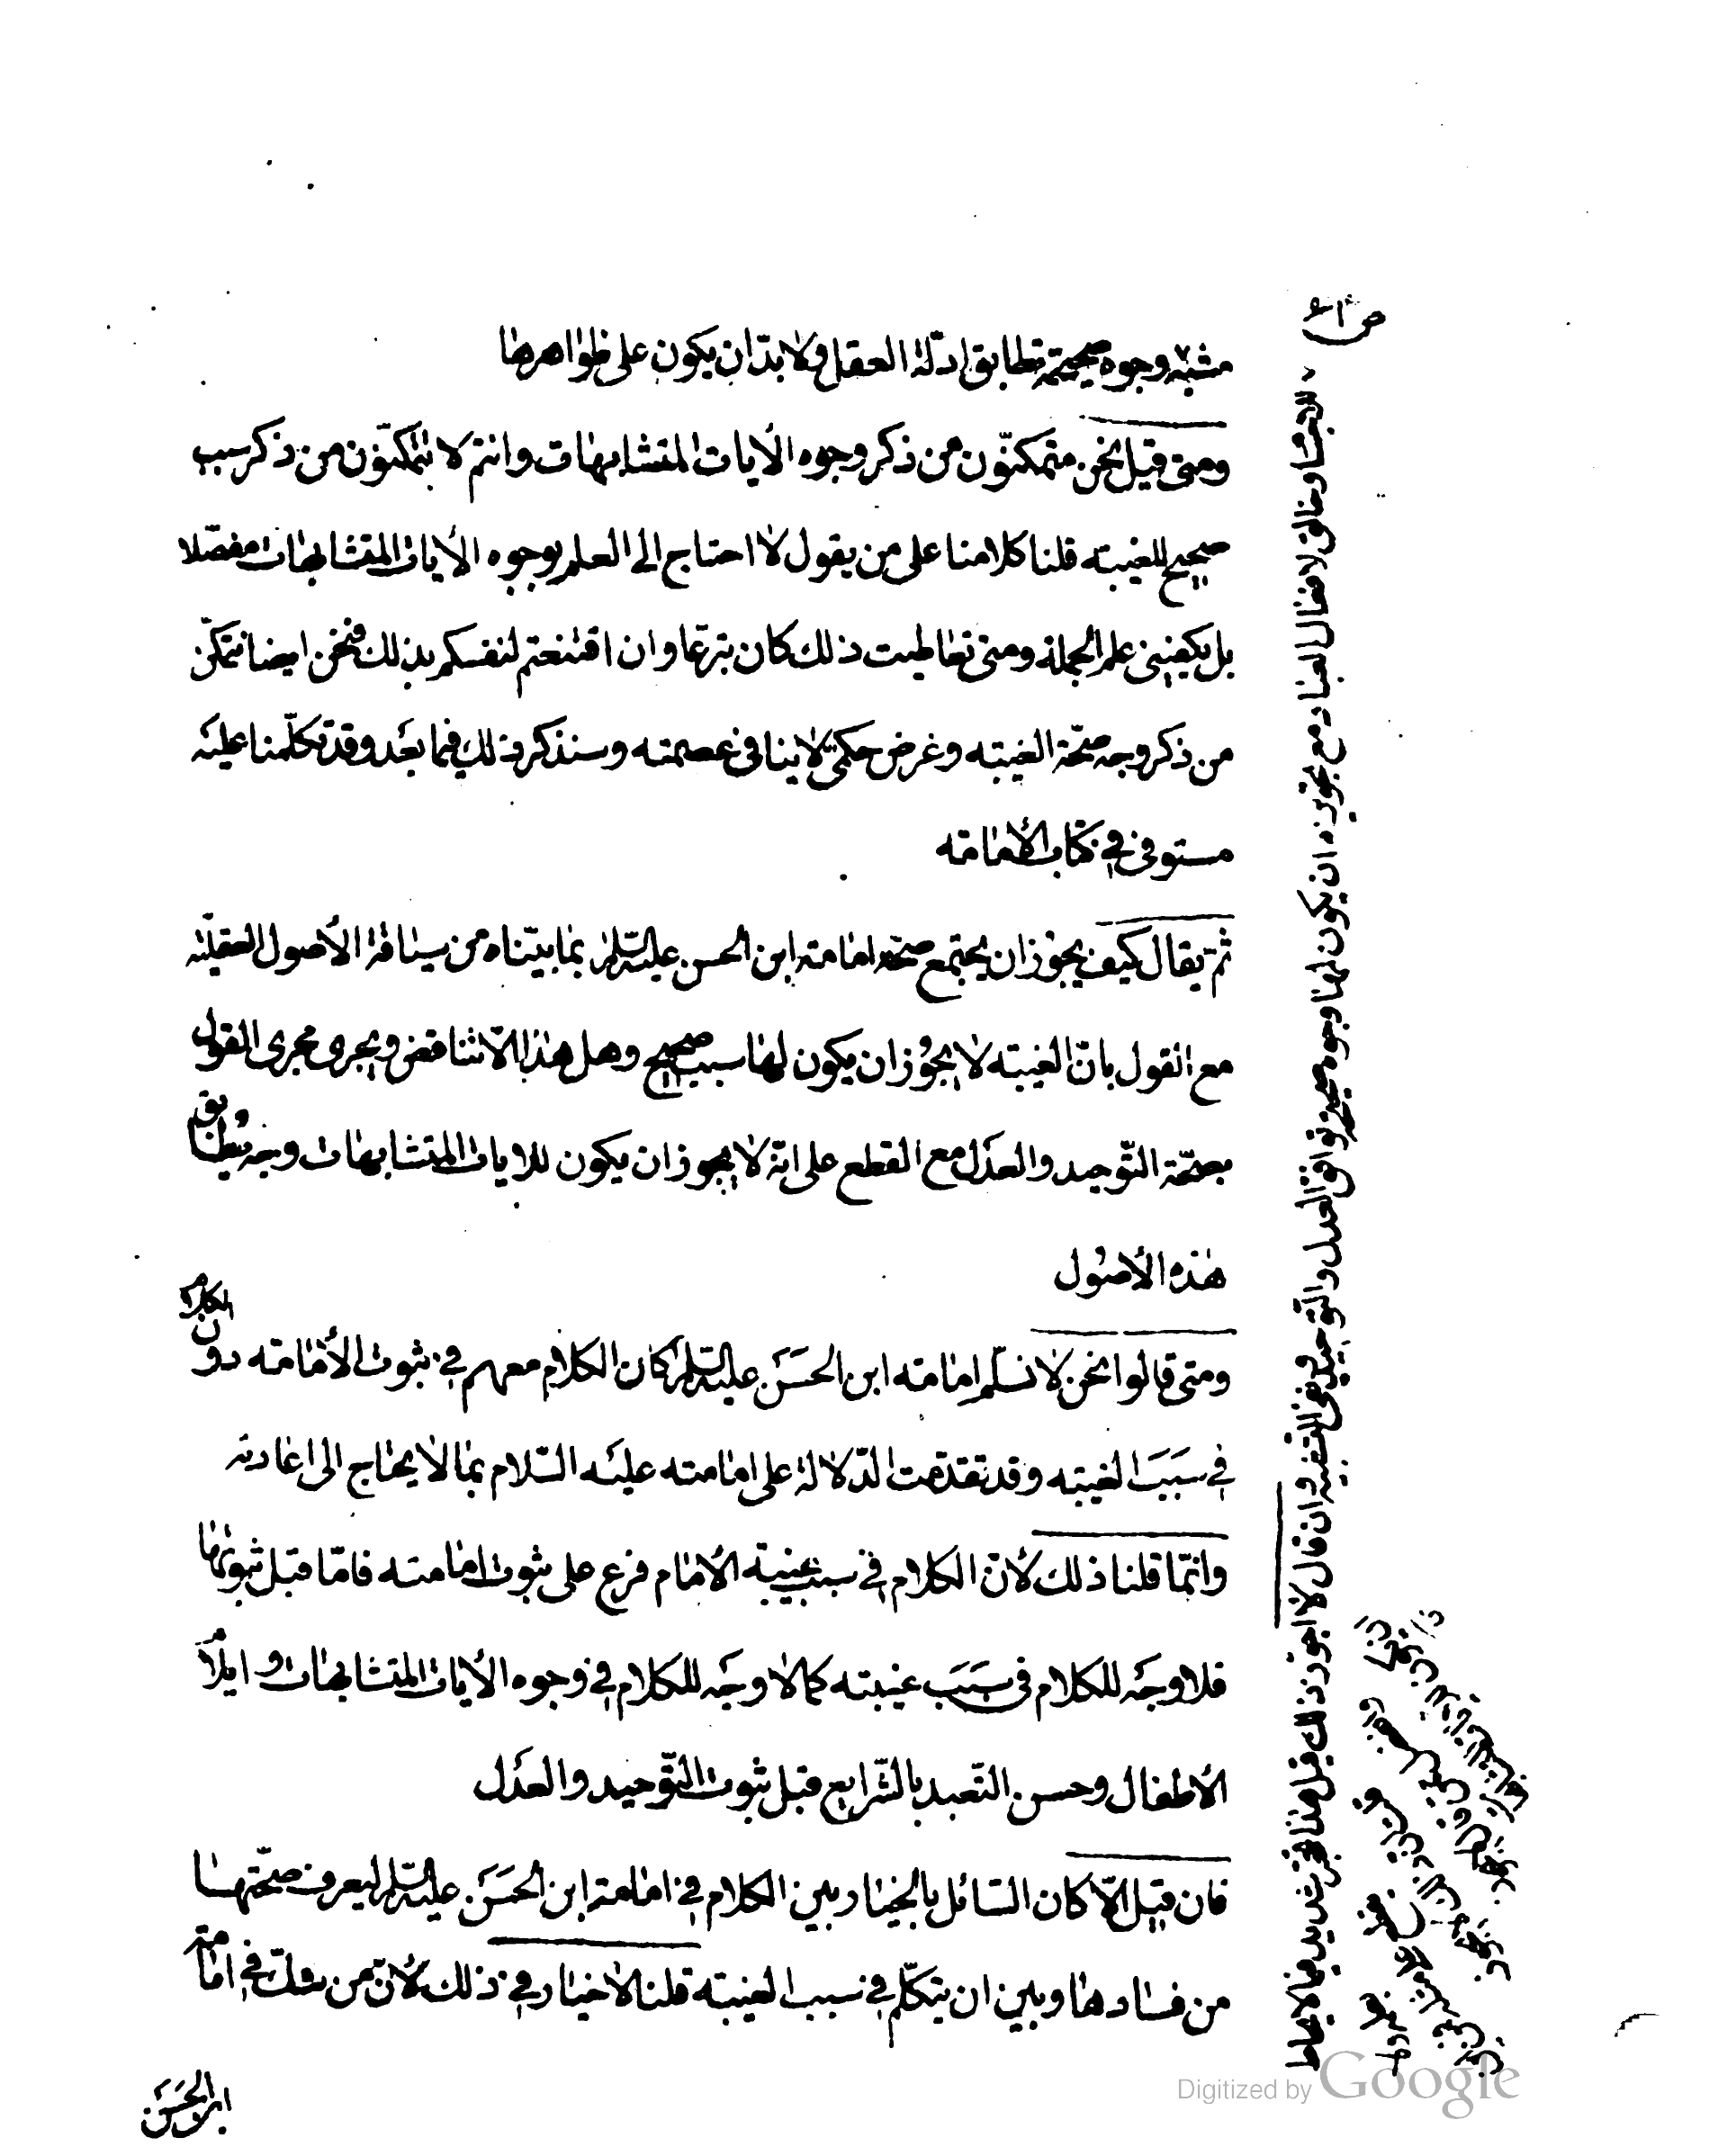 مشبه وجوه صحيحة تطابق ادلة العقل ولا بد ان يكون على ظواهرها
ومتى قيل نحن متمكنون من ذكر وجوه الأيات المتشابهات وانتم لا تتمكنون من ذكر سبب
صحيح للغيبته قلنا كلامنا على من يقول لا احتاج الى العلم بوجوه الأيات المتشابهات مفصلا
بل يكفيني علم الجملة ومتى تعاطيت ذلك كان تبرعا وان اقتنعتم لنفسكم بذلك فنحن ايضا نتمكن
من ذكر وجه صحة الغيبته وغرض حكمي لا ينافي عصمته وسنذكر ذلك فيما بعد وقد تكلمنا عليه
مستوفى في كتاب الأمامته
ثم يقال كيف يجوز ان يجتمع صحة امامته ابن الحسن عليه السلام بما بيناه من سياقة الأصول العقلية
مع القول بان الغيبته لا يجوز ان يكون لها سبب صحيح وهل هذا الا تناقض ويجرى مجرى القول
بصحة التوحيد والعدل مع القطع على انه لا يجوز ان يكون للايات المتشابهات وجه يطابق
هذه الأصول
ومتى قالوا نحن لا نسلم امامته ابن الحسن عليه السلام كان الكلام معهم في ثبوت الأمامته دون الكلام
في سبب الغيبته وقد تقدمت الدلالة على امامته عليه السلام بما لا يحتاج الى اعادته
وانما قلنا ذلك لأن الكلام في سبب غيبة الأمام فرع على ثبوت امامته فاما قبل ثبوتها
فلا وجه للكلام في سبب غيبته كما لا وجه للكلام في وجوه الأيات المتشابهات وايلام
الأطفال وحسن التعبد بالشرايع قبل ثبوت التوحيد والعدل
فان قيل الا كان السائل بالخيار بين الكلام في امامة ابن الحسن عليه السلام ليعرف صحتها
من فسادها وبين ان يتكلم في سبب الغيبته قلنا لا خيار في ذلك لأن من شك في امامته
ابن الحسن
وخالق لافعال العباد مع تجويزه ان يكون لها وجوه صحيحة توافق العدل والتوحيد ونفي التشبيه وان قال لا اجوز ذلك قيل هذا تحجر شديد فيما لا يحاط
Digitized by Google